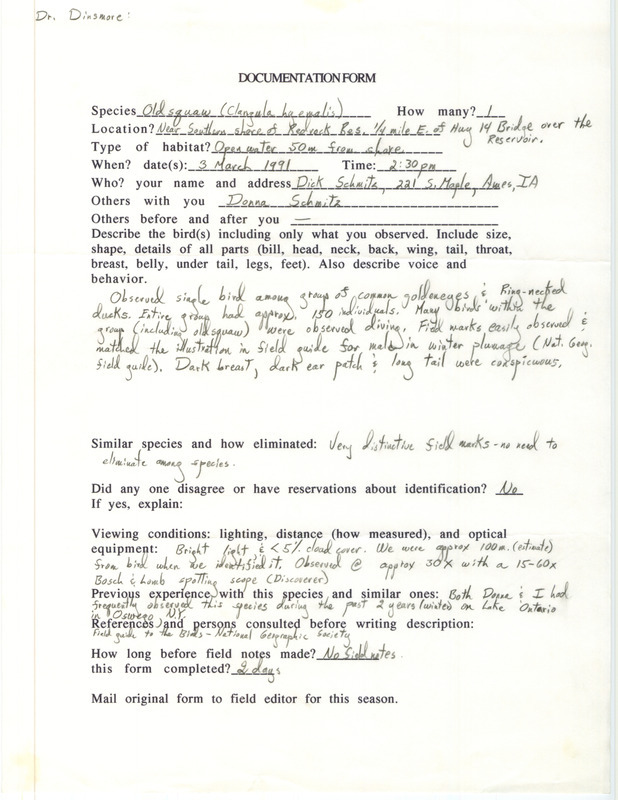 Dr. Dinsmore:
DOCUMENTATION FORM
Species Oldsquaw (Clangula hyemalis) How many? 1
Location? Near Southern shore of Redrock Res. 1/4 mile E. of Hwy 14 Bridge over the
Reservoir.
Type of habitat? Open water 50m from shore
When? date(s): 3 March 1991 Time: 2:30 pm
Who? your name and address Dick Schmitz, 221 S. Maple, Ames, IA
Others with you Donna Schmitz
Others before and after you —
Describe the bird(s) including only what you observed. Include size,
shape, details of all parts (bill, head, neck, back, wing, tail, throat,
breast, belly, under tail, legs, feet). Also describe voice and
behavior.
Observed single bird among group of common goldeneyes & Ring-necked
ducks. Entire group had approx. 150 individuals. Many birds within the
group (including oldsquaw) were observed diving. Field marks easily observed &
matched the illustration in field guide for male in winter plumage (Nat. Geog.
field guide). Dark breast, dark ear patch & long tail were conspicuous.
Similar species and how eliminated: Very distinctive field marks - no need to
eliminate among species.
Did any one disagree or have reservations about identification? No
If yes, explain:
Viewing conditions: lighting, distance (how measured), and optical
equipment: Bright light & <5% cloud cover. We were approx 100m. (estimate)
from bird when we identified it. Observed @ approx 30X with a 15-60x
Bosch & Lomb spotting scope (Discoverer)
Previous experience with this species and similar ones: Both Donna & I had
frequently observed this species during the past 2 years (winter) on Lake Ontario
in Oswego, N.Y.
References and persons consulted before writing description:
Field guide to the Birds - National Geographic Society
How long before field notes made? No field notes.
this form completed? 2 days
Mail original form to field editor for this season.